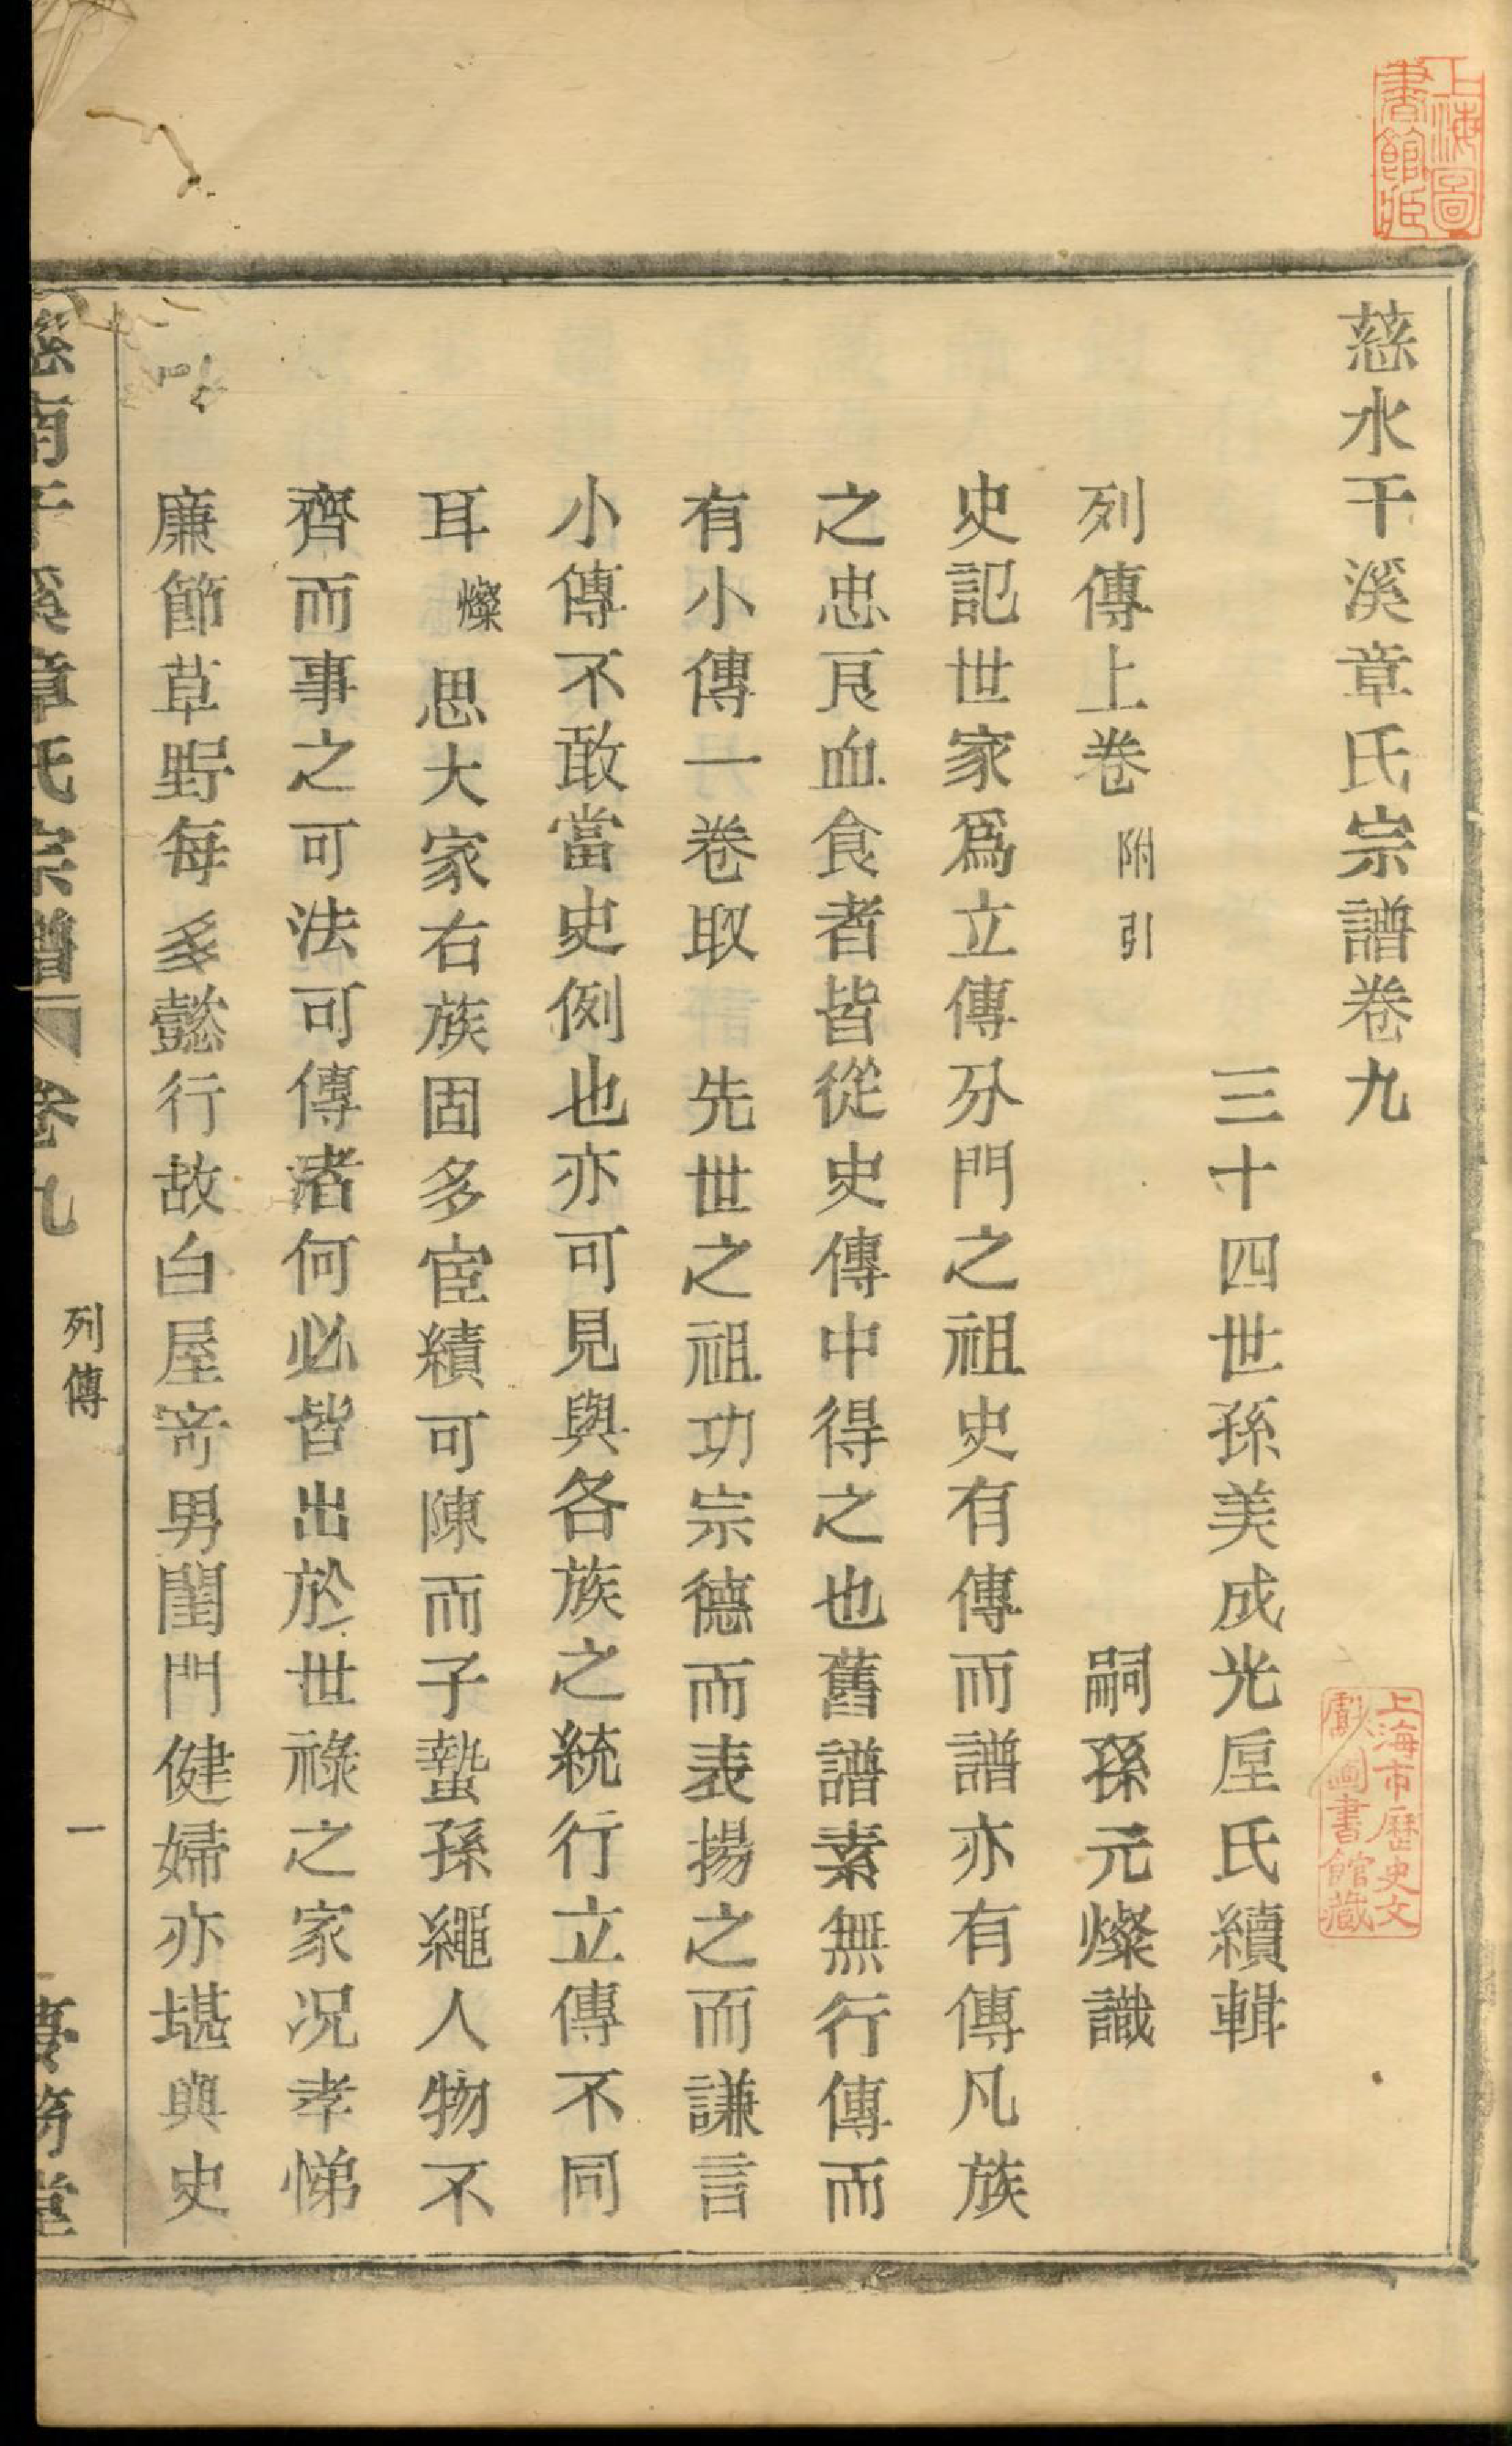 上海圖
書館藏
慈水干溪章氏宗譜卷九
三十四世孫美成光垕氏續輯
上海市歷史文
獻圖書館藏
列傳上卷 附引 嗣孫元燦識
史記世家爲立傳分門之祖史有傳而譜亦有傳凡族
之忠良血食者皆從史傳中得之也舊譜素無行傳而
有小傳一卷取 先世之祖功宗德而表揚之而謙言
小傳不敢當史例也亦可見與各族之統行立傳不同
耳燦思大家右族固多宦績可陳而子蟄孫繩人物不
齊而事之可法可傳者何必皆出於世祿之家况孝悌
廉節草野每多懿行故白屋竒男閨門健婦亦堪與史
慈南干溪章氏宗譜 卷九 列傳 一